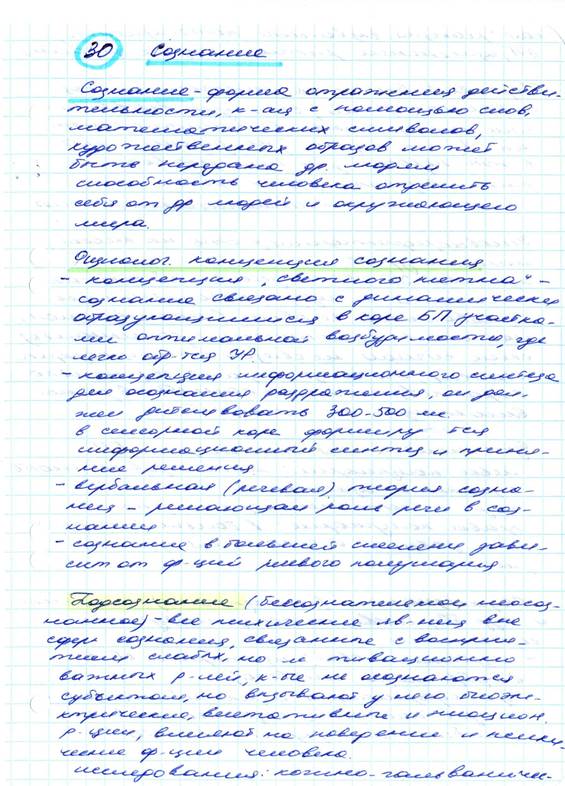 30 Сознание
Сознание - форма отражения действи-
тельности, к-ая с помощью слов,
математических символов,
художественных образов может
быть передана др. людям
способность человека отделить
себя от др людей и окружающего
мира.
Физиолог. концепция сознания
- концепция „светлого пятна" -
сознание связано с динамически
образующимися в коре БП участка-
ми оптимальной возбудимости, где
легко обр-тся УР.
- концепция информационного синтеза
для осознания раздражения, он дол-
жен действовать 300-500 мс.
в сенсорной коре формиру тся
информационный синтез и приня-
тие решения
- вербальная (речевая) теория созна-
ния - решающая роль речи в соз-
нании
- сознание в большей степени зави-
сит от ф-ций левого полушария
Подсознание (бессознательное неосоз-
нанное) - все психические яв-ния вне
сферы сознания, связанные с восприя-
тием слабых, но мотивационно
важных р-лей, к-ые не осознаются
субъектом, но вызывают у него биоэле-
ктрические, вегетативные и эмоцион.
р-ции, влияют на поведение и психи-
ческие ф-ции человека.
исследования: кожно-гальваничес-